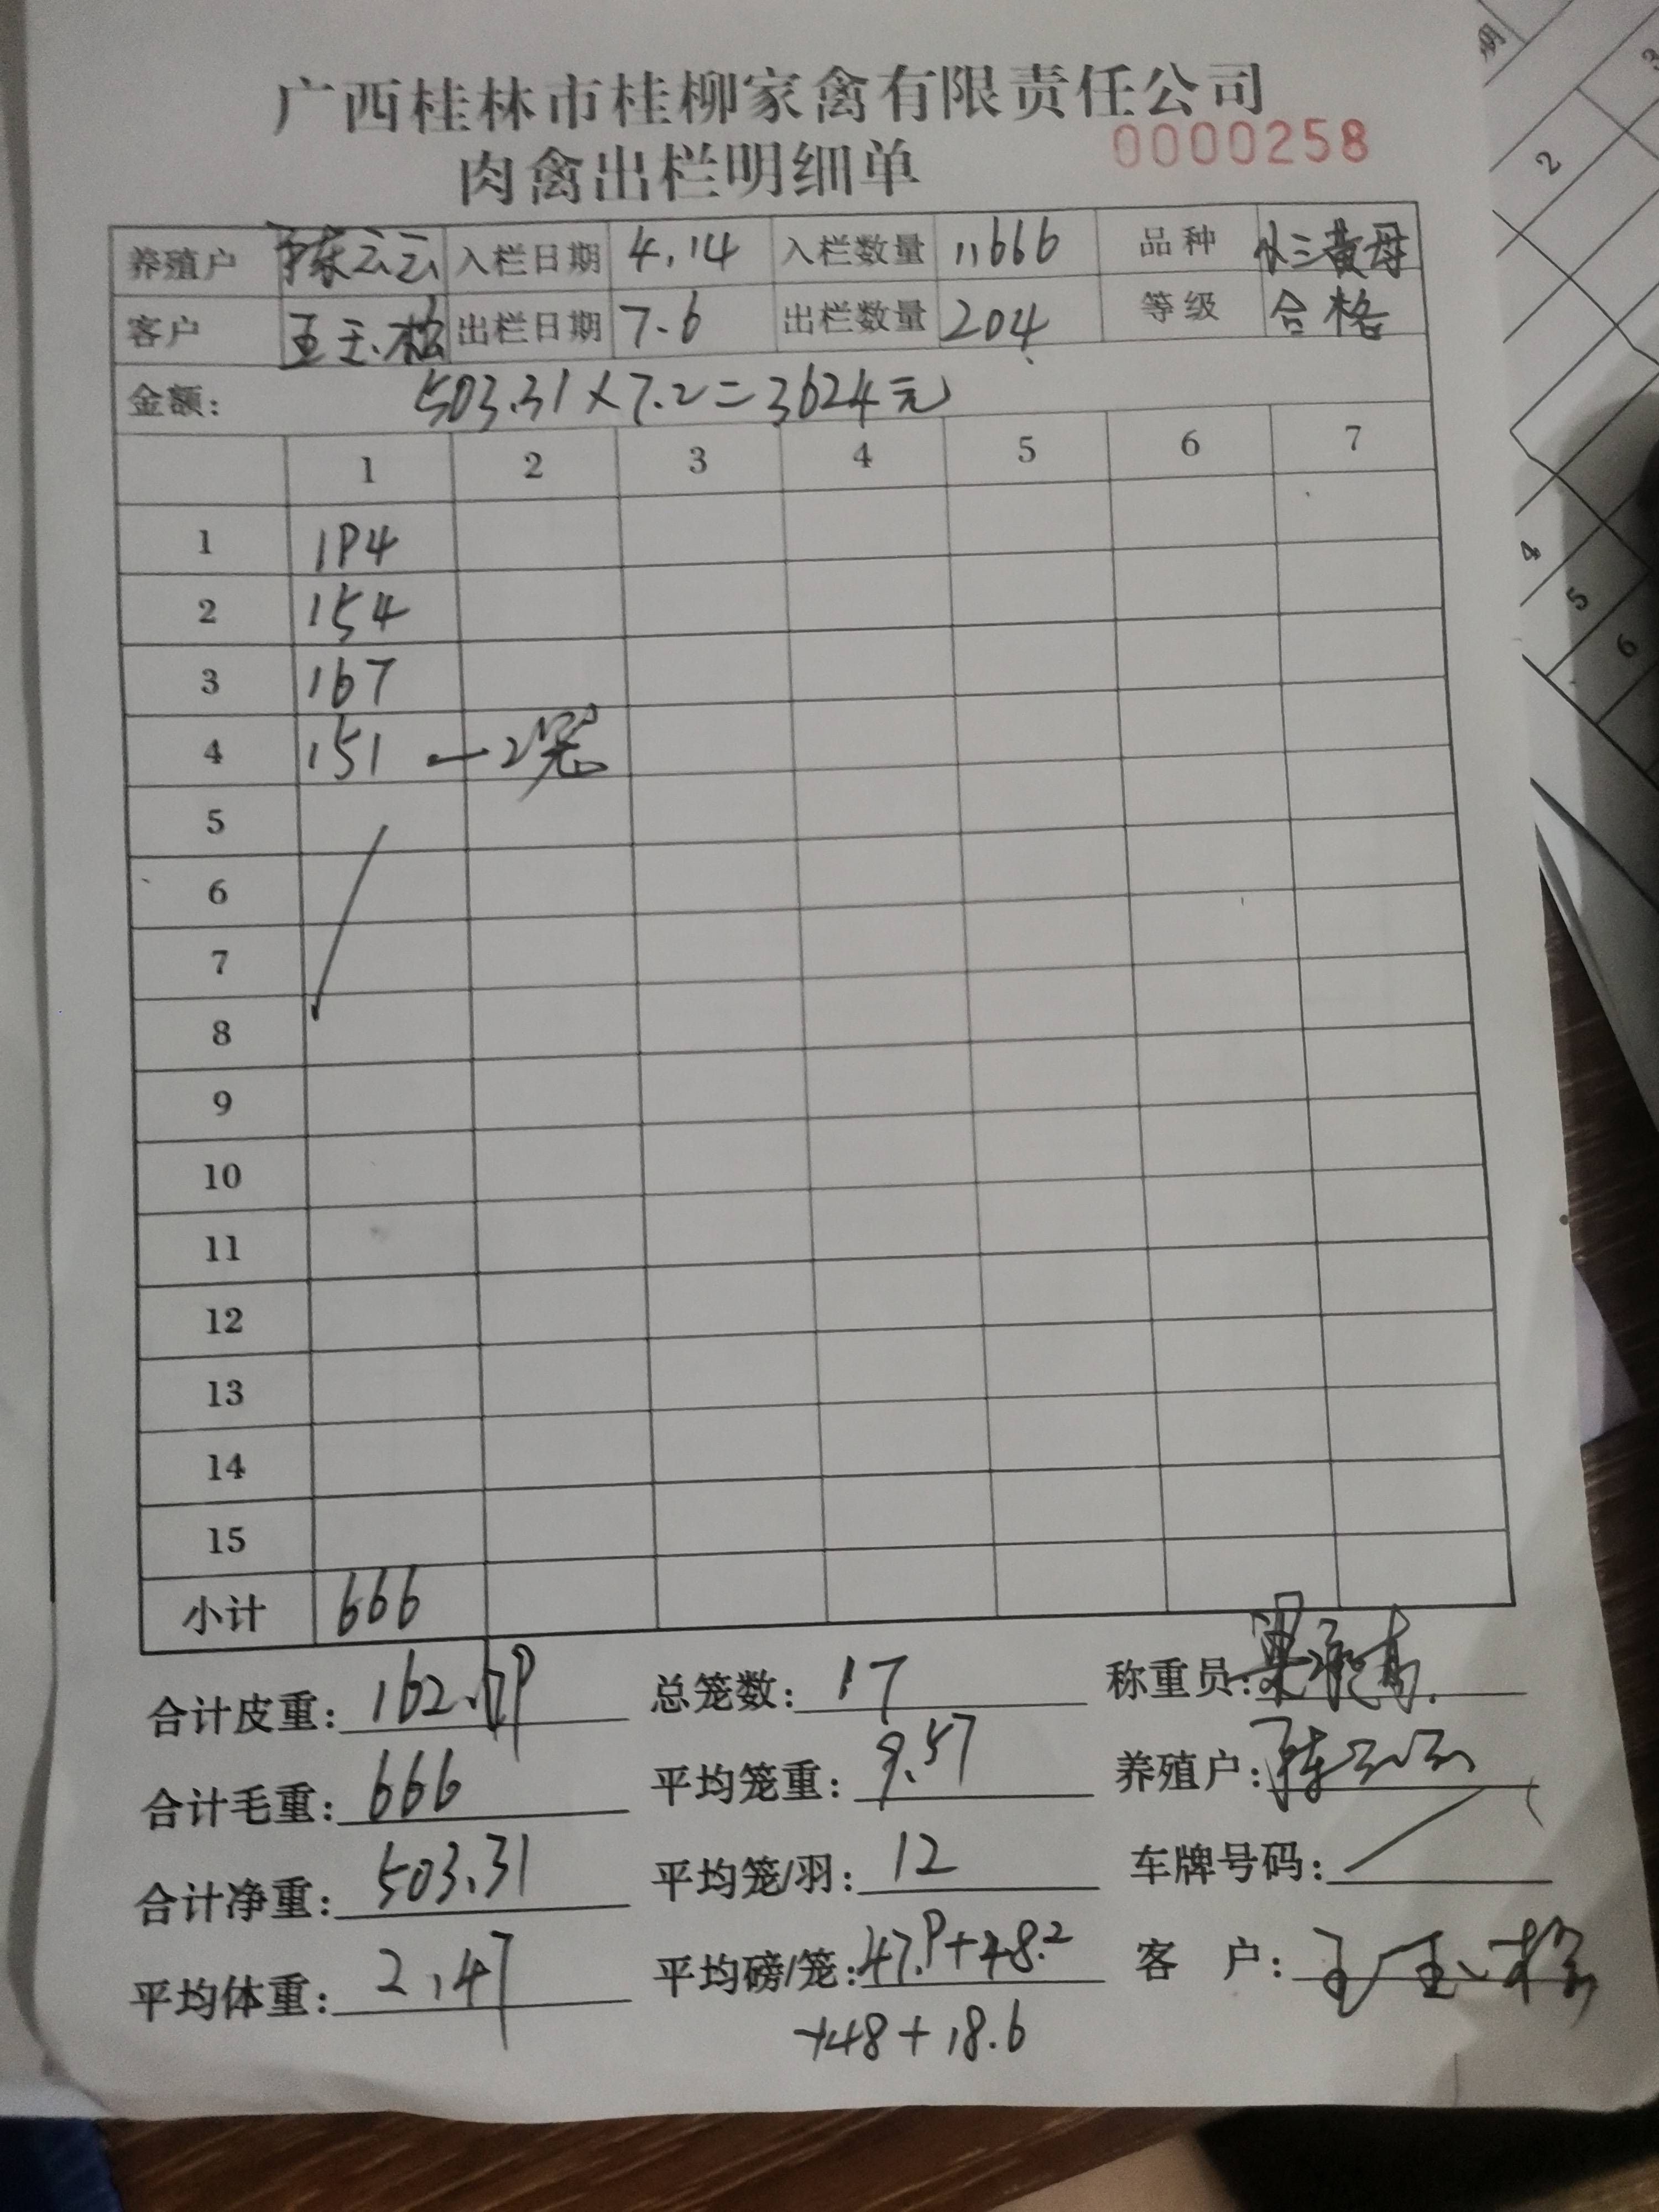 广西桂林市桂柳家禽有限责任公司
肉禽出栏明细单 0000258
养殖户 陈云云 入栏日期 4.14 入栏数量 11,666 品种 小三黄母
客户 王玉松 出栏日期 7.6 出栏数量 204 等级 合格
金额: 503.31×7.2=3624元
1 2 3 4 5 6 7
1 194
2 154
3 167
4 151 —2笼
5
6
7
8
9
10
11
12
13
14
15
小计 666
合计皮重: 162.69 总笼数: 17 称重员:
合计毛重: 666 平均笼重: 9.57 养殖户: 陈云云
合计净重: 503.31 平均笼/羽: 12 车牌号码:
平均体重: 2.47 平均磅/笼: 47.9+48.2 客 户: 王玉松
+48+18.6
2
3
4
5
6